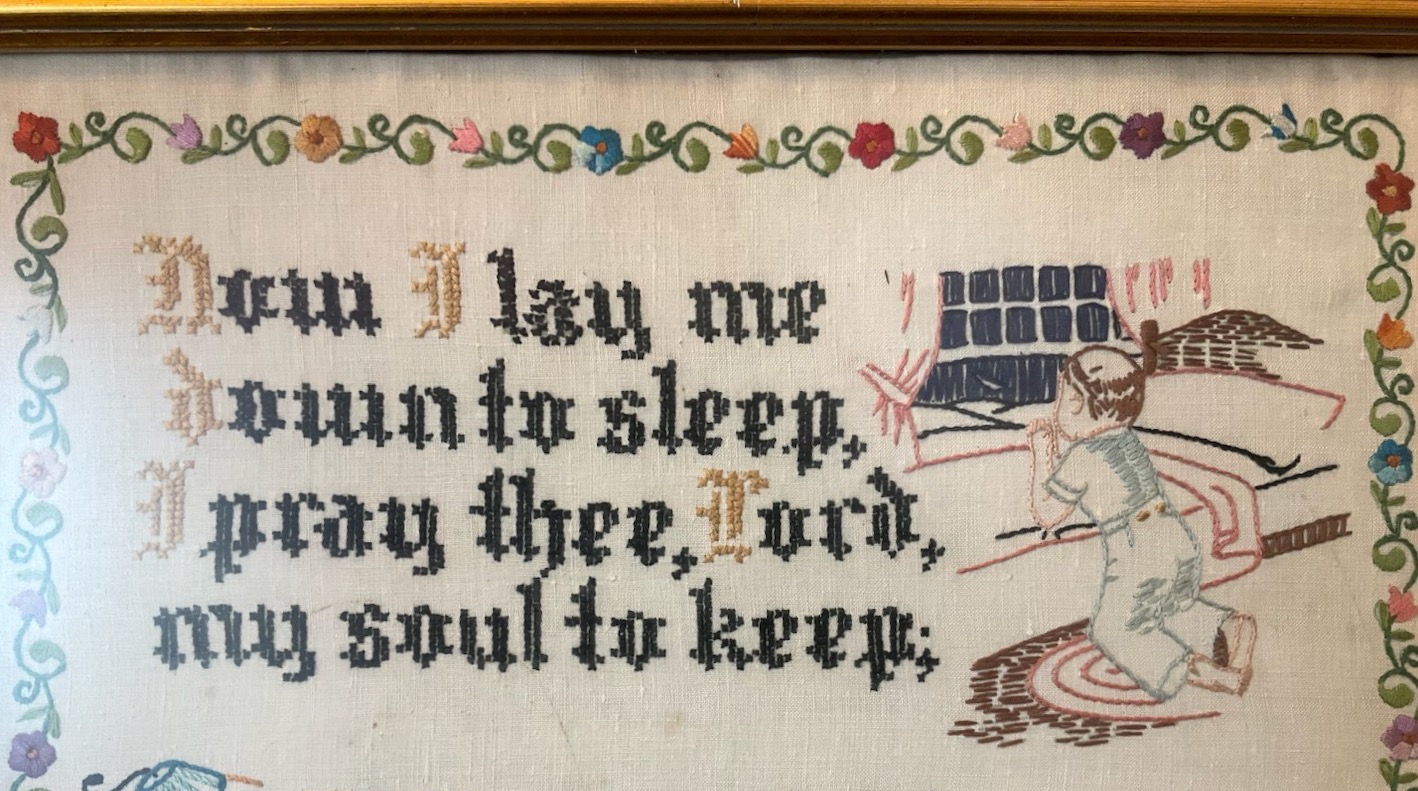 Now I lay me
down to sleep,
I pray thee, Lord,
my soul to keep;